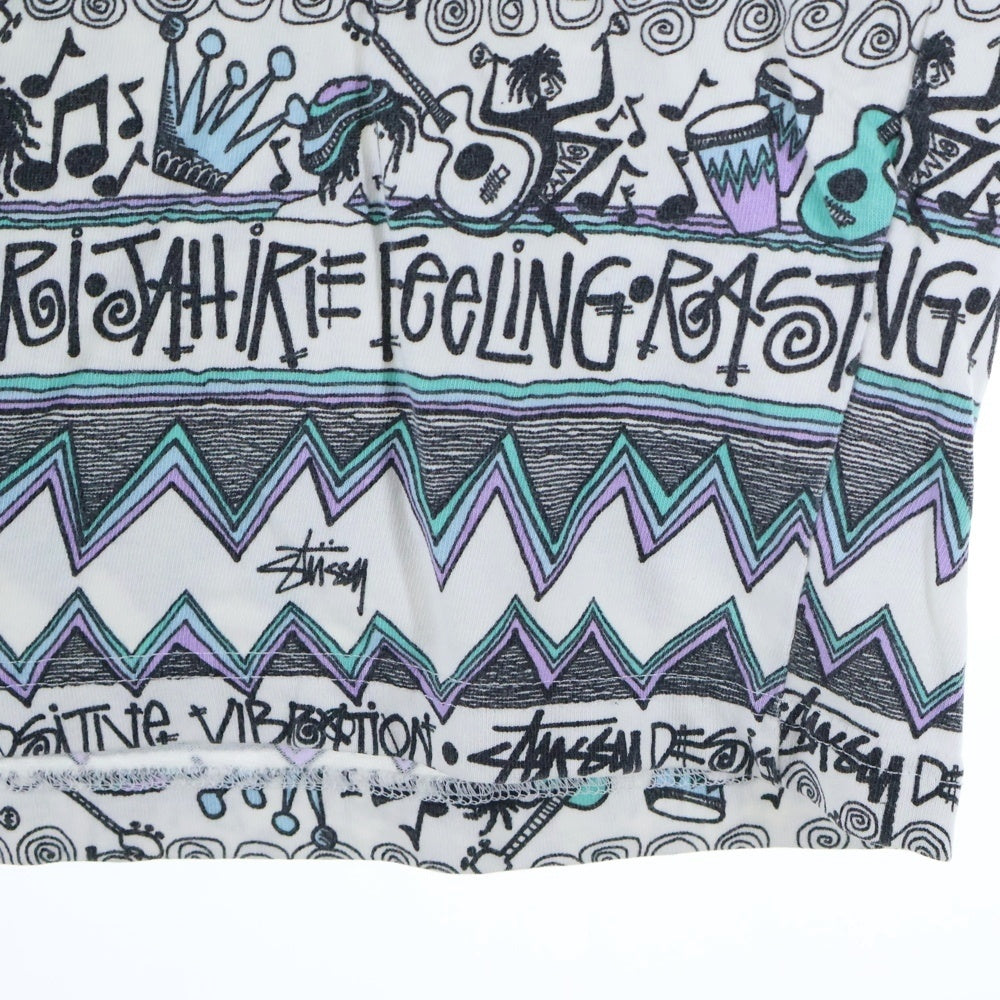 RI•JAH IRIE FEELING•RAST NG•
Stüssy
POSITIVE VIBRATION • Stüssy DESig Stüssy DE